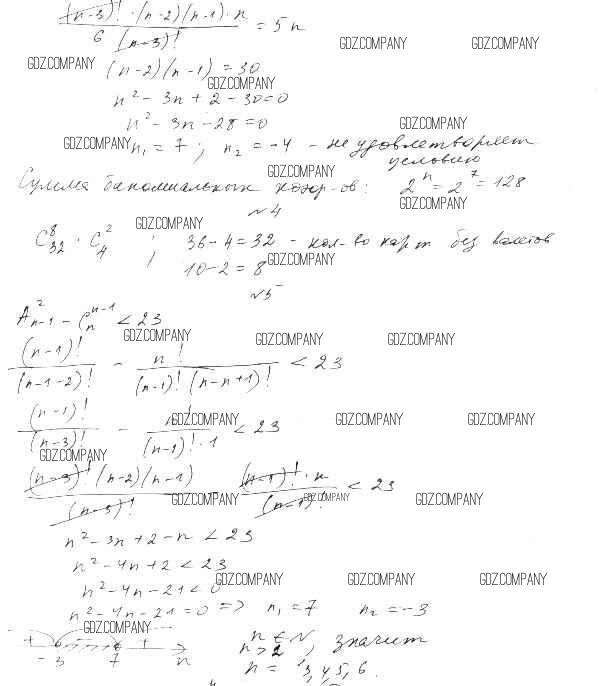 (n-3)! · (n-2)(n-1) · n / 6 (n-3)! = 5n
GDZ.COMPANY GDZ.COMPANY
GDZ.COMPANY
(n-2)(n-1) = 30
GDZ.COMPANY
n² - 3n + 2 - 30 = 0
n² - 3n - 28 = 0
GDZ.COMPANY
GDZ.COMPANY n₁ = 7 ; n₂ = -4 - не удовлетворяет
условию
GDZ.COMPANY
Сумма биномиальных коэф-ов: 2ⁿ = 2⁷ = 128
GDZ.COMPANY
№4
GDZ.COMPANY
C₃₂⁸ · C₄² ; 36 - 4 = 32 - кол-во карт без валетов
10 - 2 = 8
GDZ.COMPANY
№5
A²ₙ₋₁ - Cₙⁿ⁻¹ < 23
GDZ.COMPANY GDZ.COMPANY GDZ.COMPANY
(n-1)! / (n-1-2)! - n! / (n-1)! (n-n+1)! < 23
(n-1)! / (n-3)! - n! / (n-1)! · 1 < 23
GDZ.COMPANY GDZ.COMPANY GDZ.COMPANY
GDZ.COMPANY
(n-3)! (n-2)(n-1) / (n-3)! - (n-1)! · n / (n-1)! < 23
GDZ.COMPANY GDZ.COMPANY GDZ.COMPANY
n² - 3n + 2 - n < 23
n² - 4n + 2 < 23
GDZ.COMPANY GDZ.COMPANY GDZ.COMPANY
n² - 4n - 21 < 0
n² - 4n - 21 = 0 => n₁ = 7 n₂ = -3
GDZ.COMPANY
+ - +
-3 7 n
n ∈ N
n > 2 , значит
n = 3, 4, 5, 6.